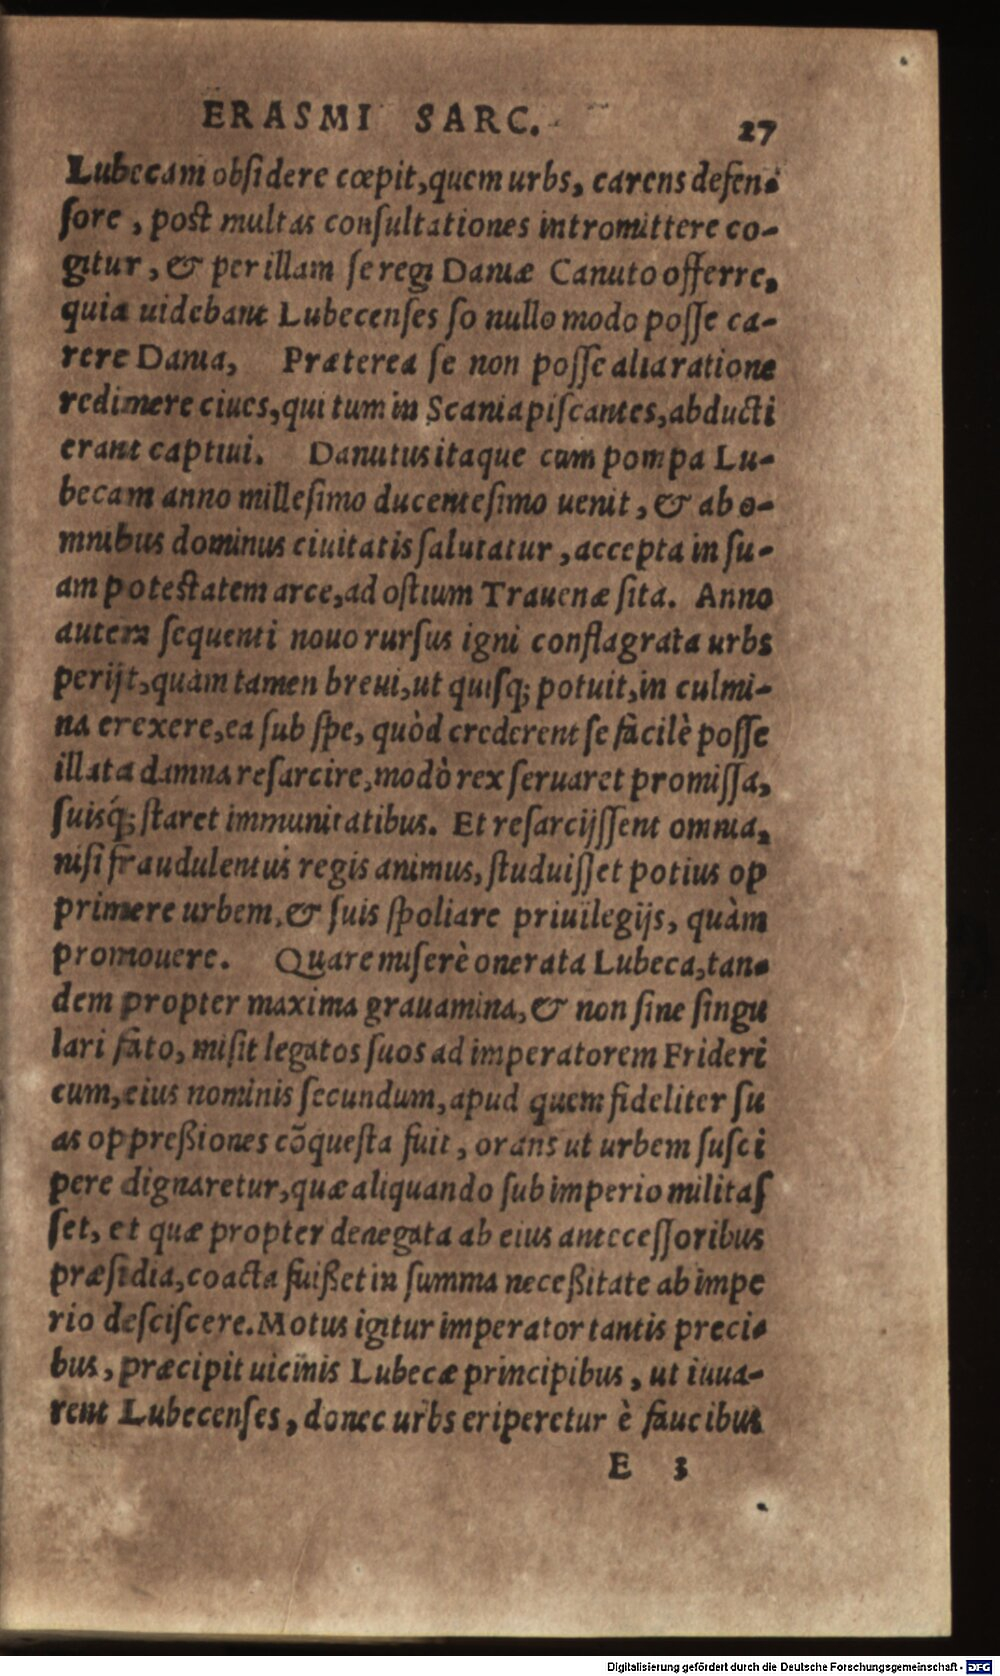 ERASMI SARC. 27
Lubecam obſidere cœpit, quem urbs, carens defen-
ſore, poſt multas conſultationes intromittere co-
gitur, & per illam ſe regi Daniæ Canuto offerre,
quia uidebant Lubecenſes ſo nullo modo poſſe ca-
rere Dania, Præterea ſe non poſſe alia ratione
redimere ciues, qui tum in Scania piſcantes, abducti
erant captiui. Danutus itaque cum pompa Lu-
becam anno milleſimo ducenteſimo uenit, & ab o-
mnibus dominus ciuitatis ſalutatur, accepta in ſu-
am poteſtatem arce, ad oſtium Trauenæ ſita. Anno
autem ſequenti nouo rurſus igni conflagrata urbs
perijt, quàm tamen breui, ut quiſq; potuit, in culmi-
na erexere, ea ſub ſpe, quòd crederent ſe facilè poſſe
illata damna reſarcire, modò rex ſeruaret promiſſa,
ſuisq́; ſtaret immunitatibus. Et reſarcijſſent omnia,
niſi fraudulentus regis animus, ſtuduiſſet potius op
primere urbem, & ſuis ſpoliare priuilegijs, quàm
promouere. Quare miſerè onerata Lubeca, tan-
dem propter maxima grauamina, & non ſine ſingu
lari fato, miſit legatos ſuos ad imperatorem Frideri
cum, eius nominis ſecundum, apud quem fideliter ſu
as oppreßiones cõqueſta fuit, orans ut urbem ſuſci
pere dignaretur, quæ aliquando ſub imperio militaſ
ſet, et quæ propter denegata ab eius anteceſſoribus
præſidia, coacta fuißet in ſumma neceßitate ab impe
rio deſciſcere. Motus igitur imperator tantis preci-
bus, præcipit uicinis Lubecæ principibus, ut iuua-
rent Lubecenſes, donec urbs eriperetur è faucibus
E 3
Digitalisierung gefördert durch die Deutsche Forschungsgemeinschaft - DFG